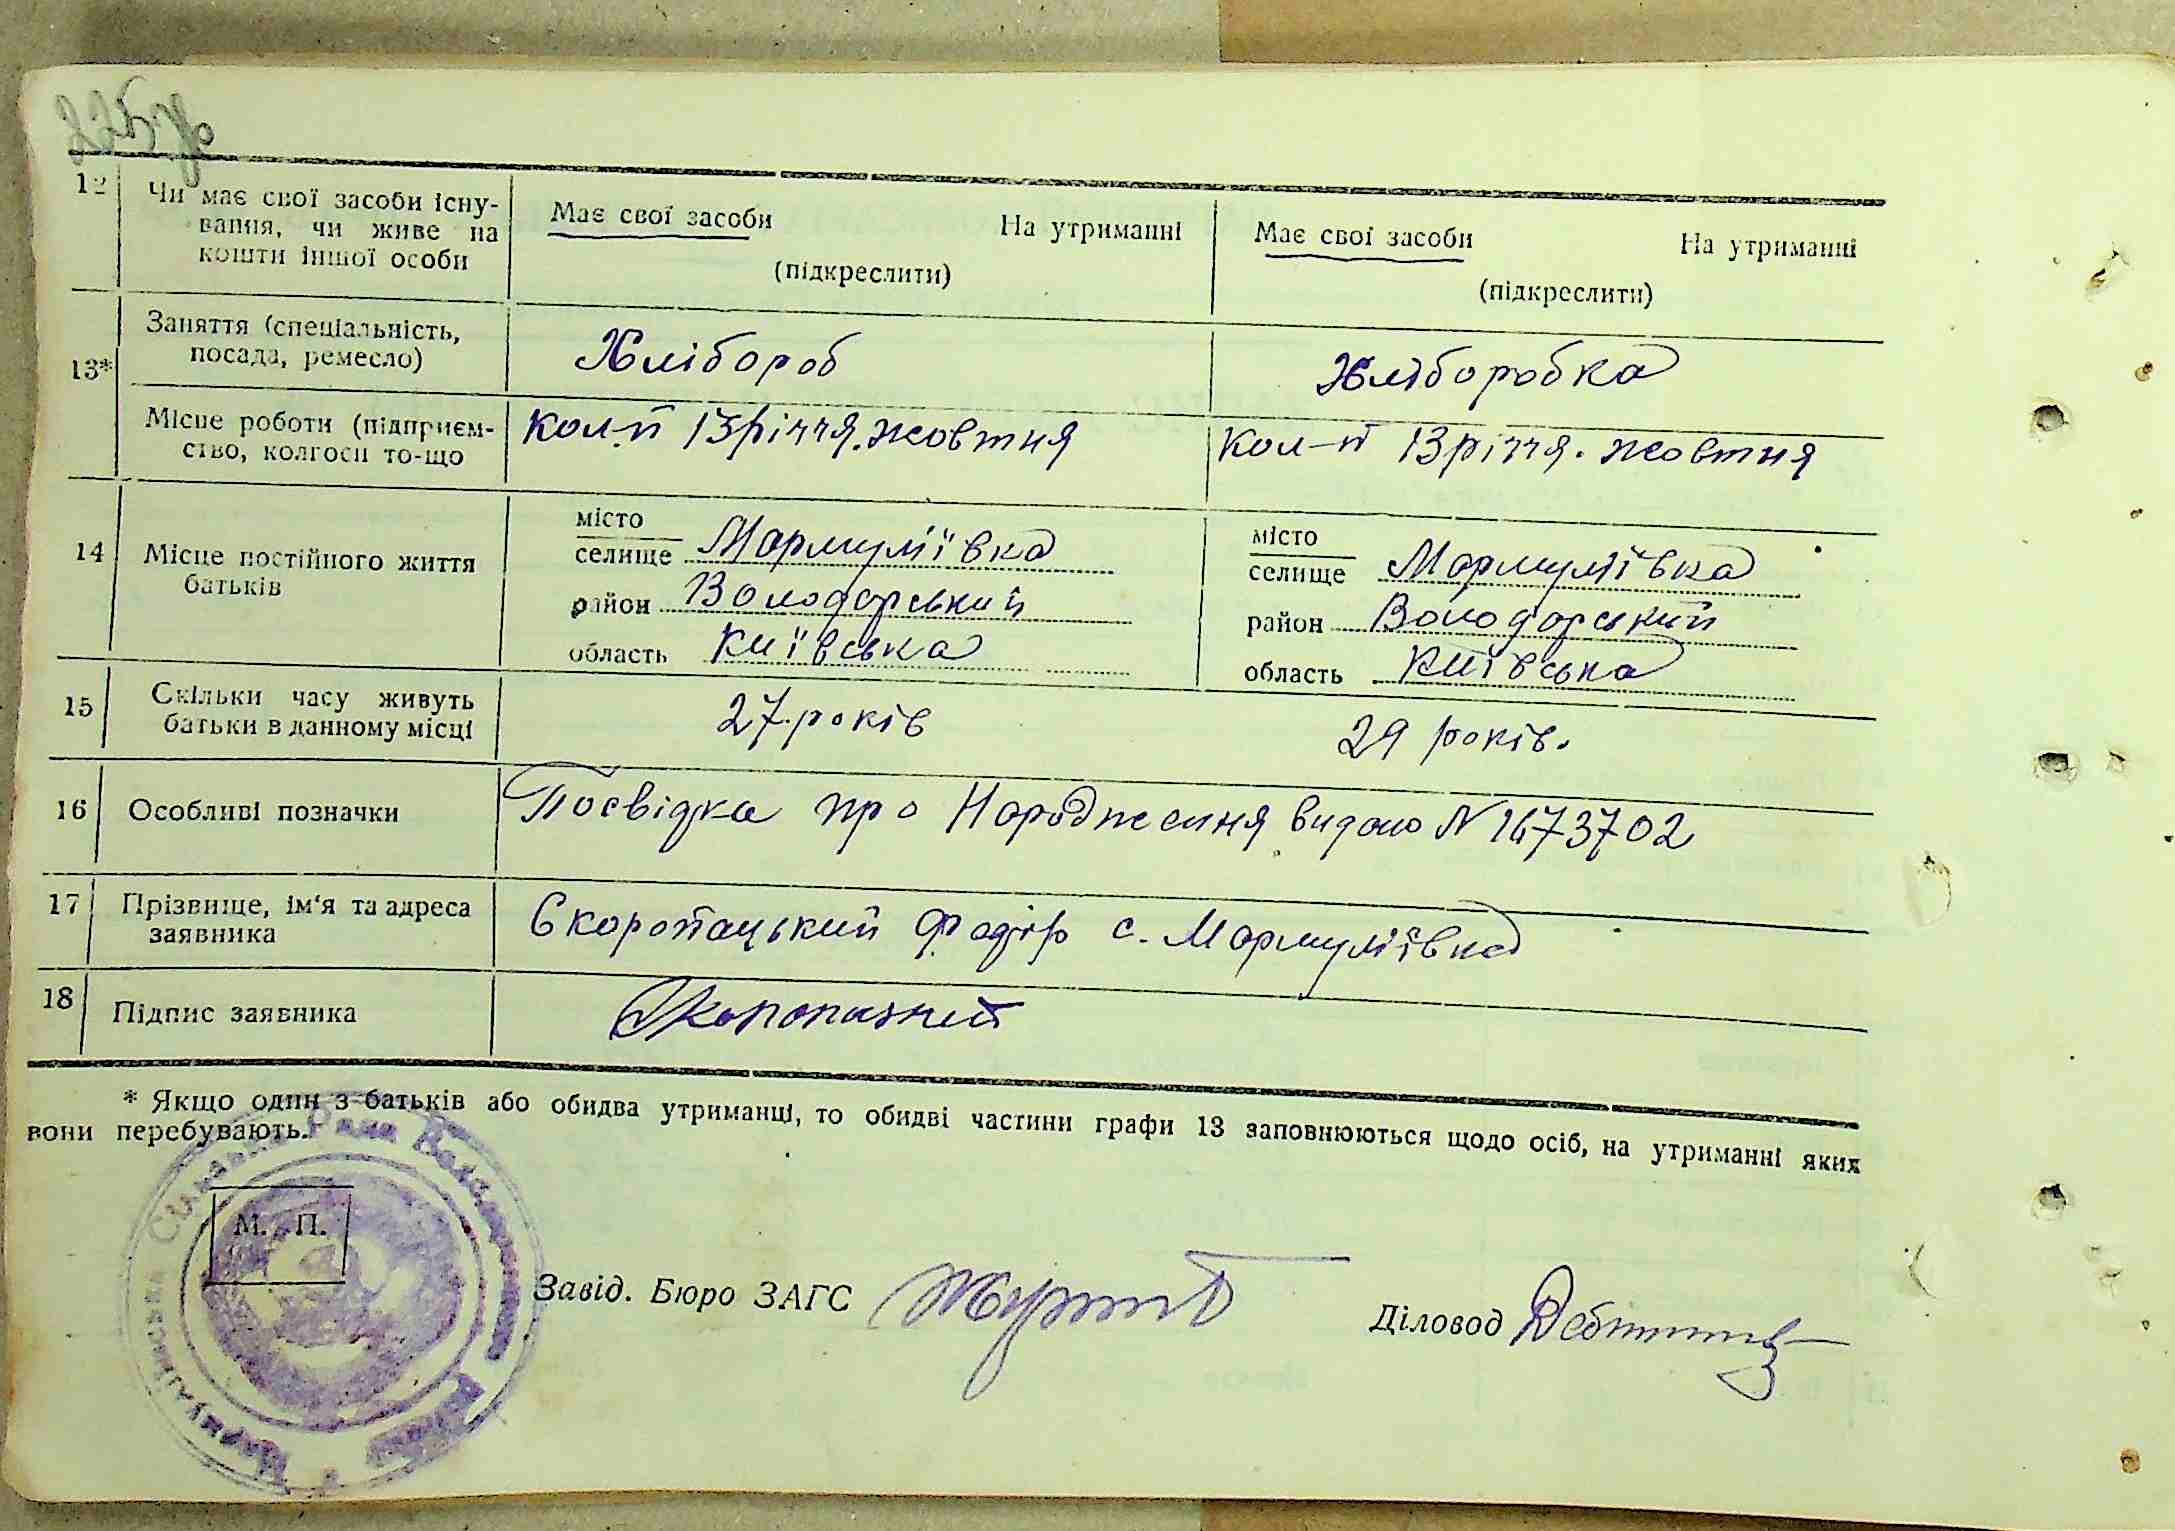 12 Чи має свої засоби існу- Має свої засоби На утриманні Має свої засоби На утриманні
вання, чи живе на
кошти іншої особи (підкреслити) (підкреслити)
13* Заняття (спеціальність, Хлібороб Хліборобка
посада, ремесло)
Місце роботи (підприєм- Кол-п 13 річчя. жовтня Кол-п 13 річчя. жовтня
ство, колгосп то-що
14 Місце постійного життя
батьків
місто місто
селище Мормуліївка селище Мормуліївка
район Володарський район Володарський
область Київська область Київська
15 Скільки часу живуть 27 років 29 років.
батьки в данному місці
16 Особливі позначки Посвідка про Народження видано N 1673702
17 Прізвище, ім'я та адреса Скоропацький Федір с. Мормуліївка
заявника
18 Підпис заявника
* Якщо один з батьків або обидва утриманці, то обидві частини графи 13 заповнюються щодо осіб, на утриманні яких
вони перебувають.
М. П.
Завід. Бюро ЗАГС Діловод